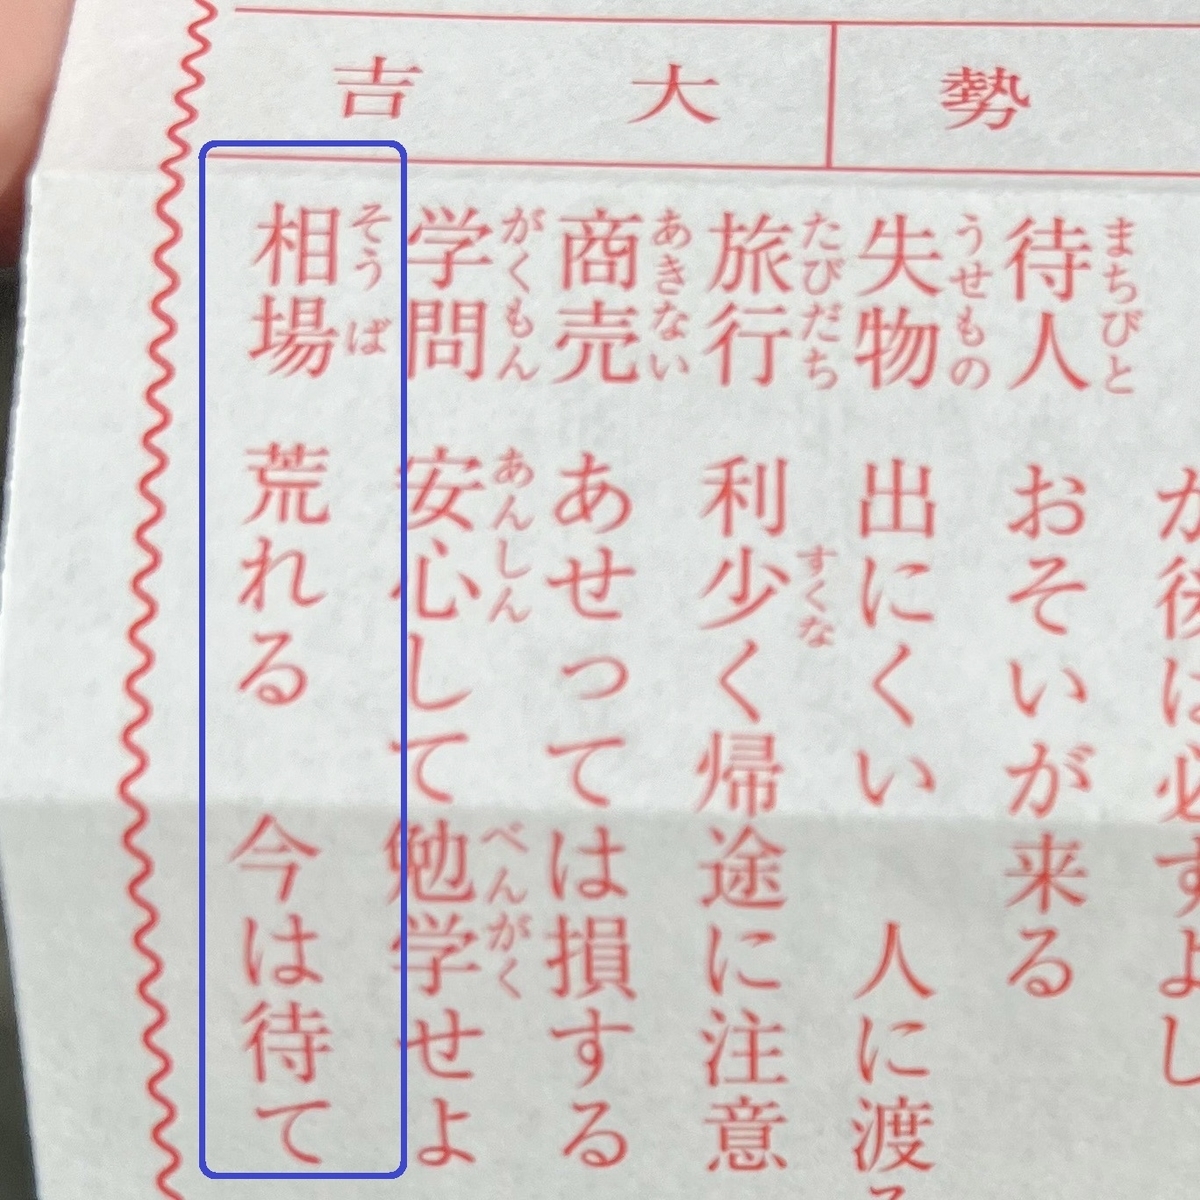 勢
大吉
が後は必ずよし
待人 おそいが来る
まちびと
失物 出にくい 人に渡る
うせもの
旅行 利少く帰途に注意
たびだち すくな
商売 あせっては損する
あきない
学問 安心して勉学せよ
がくもん あんしん べんがく
相場 荒れる 今は待て
そうば